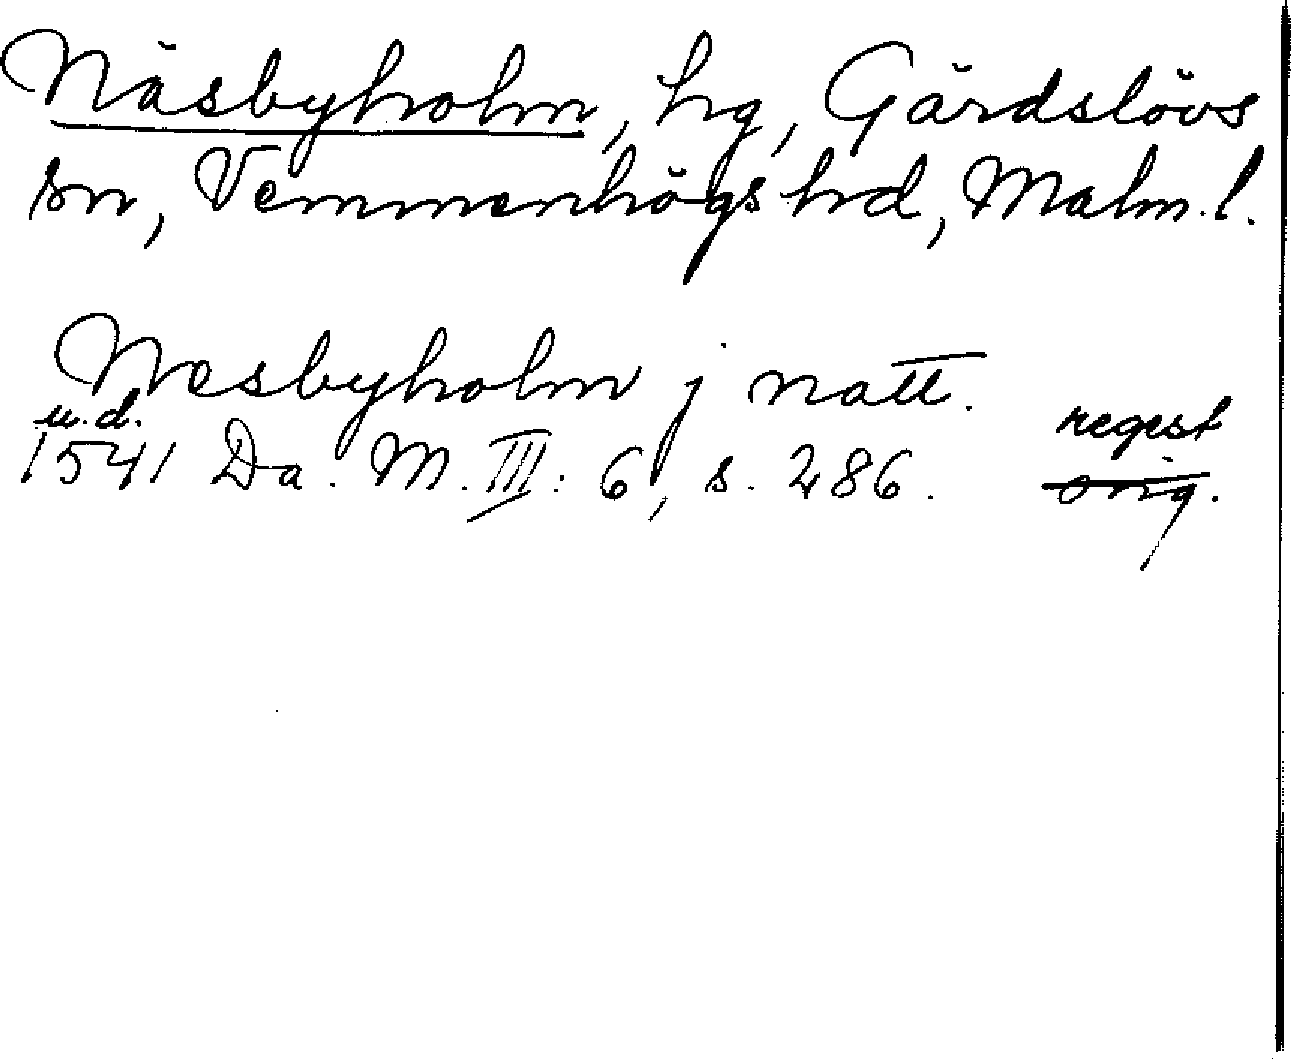 Näsbyholm, hg, Gärdslövs
sn, Vemmenhögs hd, Malm. l.
Nesbyholm j natt.
u.d.
1541 Da. M. III: 6, s. 286.
regest
orig.